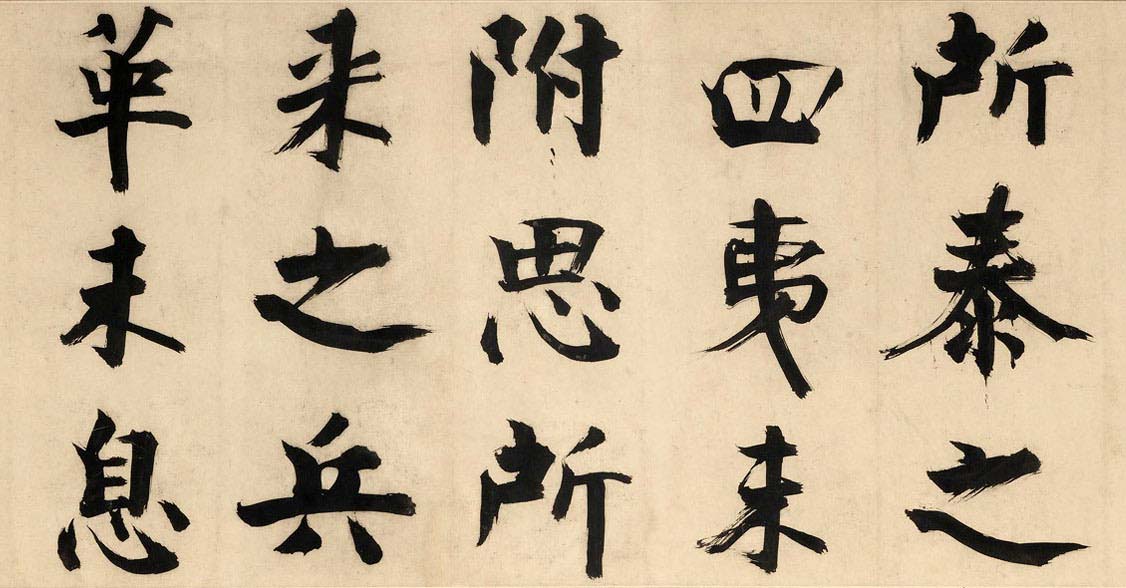 所泰之
四夷未
附思所
来之兵
革未息